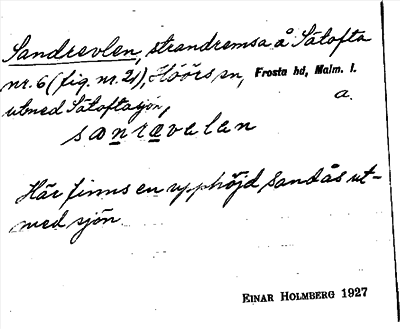 Sandrevlen, strandremsa å Sätofta
nr. 6 (fig. nr. 21), Höörs sn, Frosta hd, Malm. l.
utmed Sätoftasjön, a.
sanrævelen
Här finns en upphöjd sandås ut-
med sjön.
EINAR HOLMBERG 1927